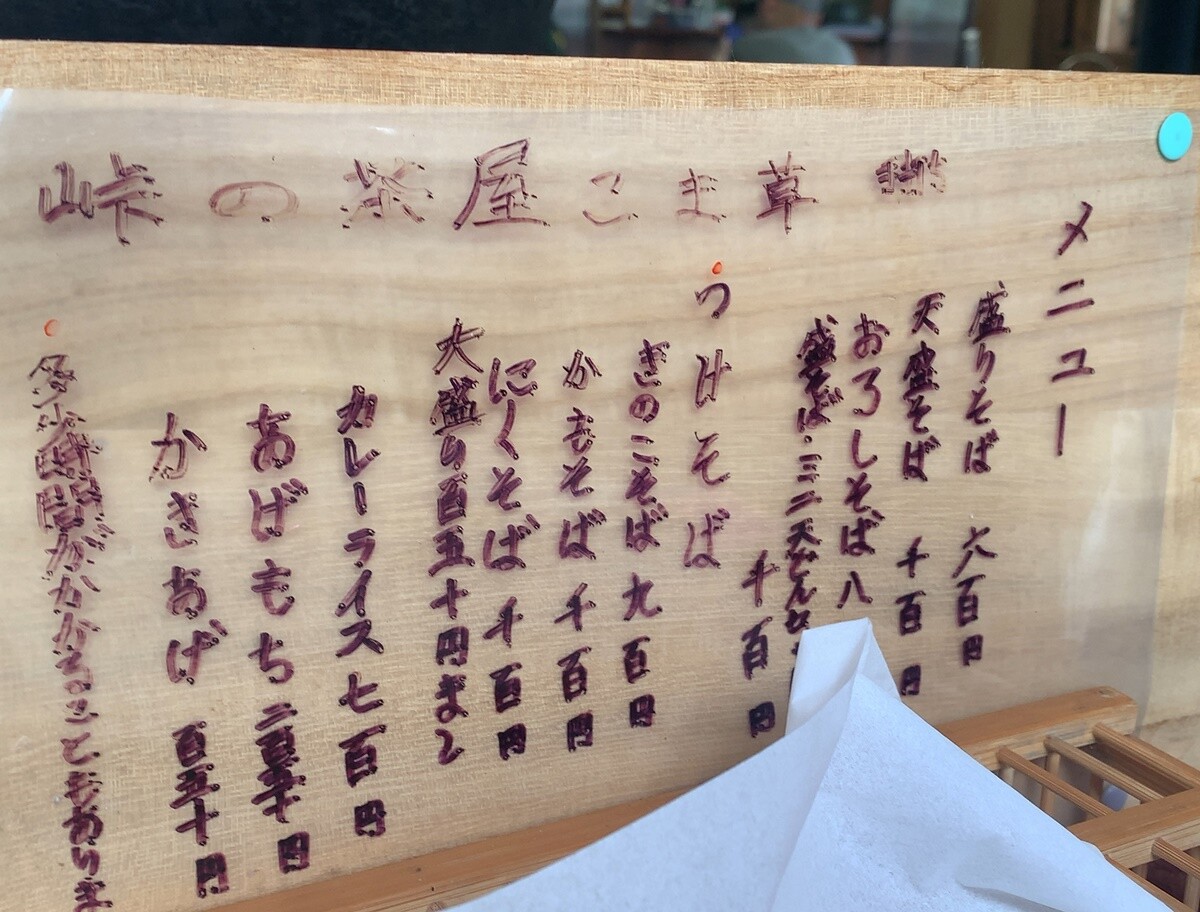 峠の茶屋こま草
メニュー
盛りそば 六百円
天盛そば 千百円
おろしそば八
盛そば・ミニ天どん
つけそば 千百円
きのこそば九百円
かもそば 千百円
にくそば 千百円
大盛り百五十円まし
カレーライス七百円
あげもち 二百五十円
かきあげ 百五十円
多少時間がかかることもありま